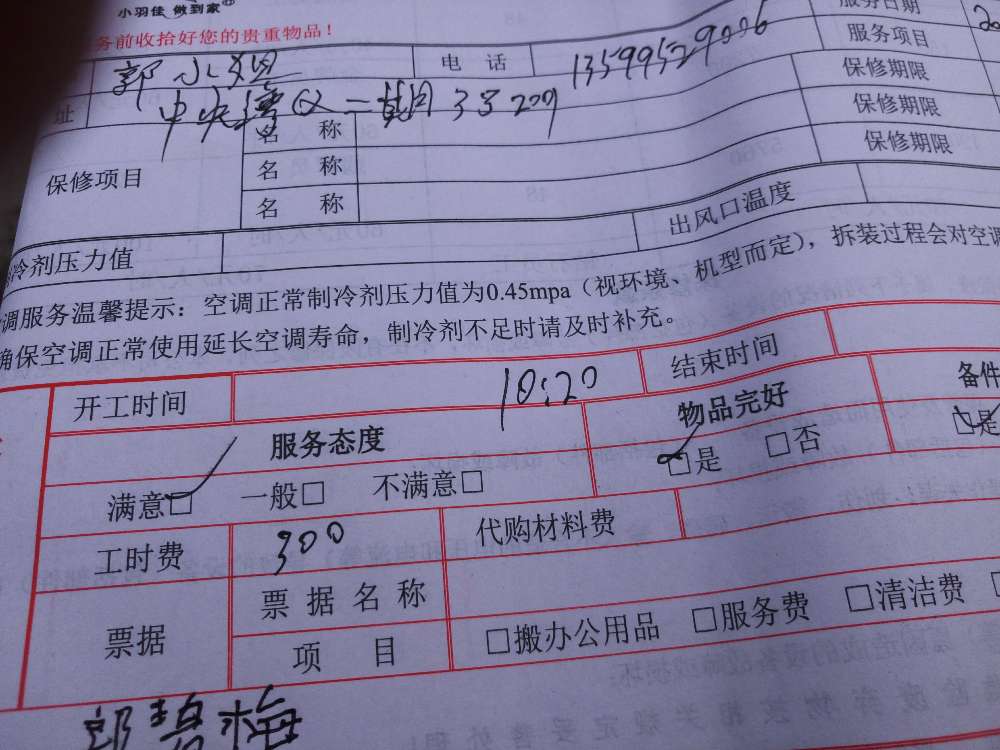 小羽佳 做到家
务前收拾好您的贵重物品！
服务日期
郭小姐 电话 13599529006 服务项目
址 中央 二期 3号 209 保修期限
保修项目 名称 保修期限
名称 保修期限
名称
冷剂压力值 出风口温度
调服务温馨提示：空调正常制冷剂压力值为0.45mpa（视环境、机型而定），拆装过程会对空调
确保空调正常使用延长空调寿命，制冷剂不足时请及时补充。
开工时间 10:20 结束时间
服务态度 物品完好 备件
满意□ 一般□ 不满意□ □是 □否 □是
工时费 300 代购材料费
票据 票据名称
项目 □搬办公用品 □服务费 □清洁费
郭碧梅